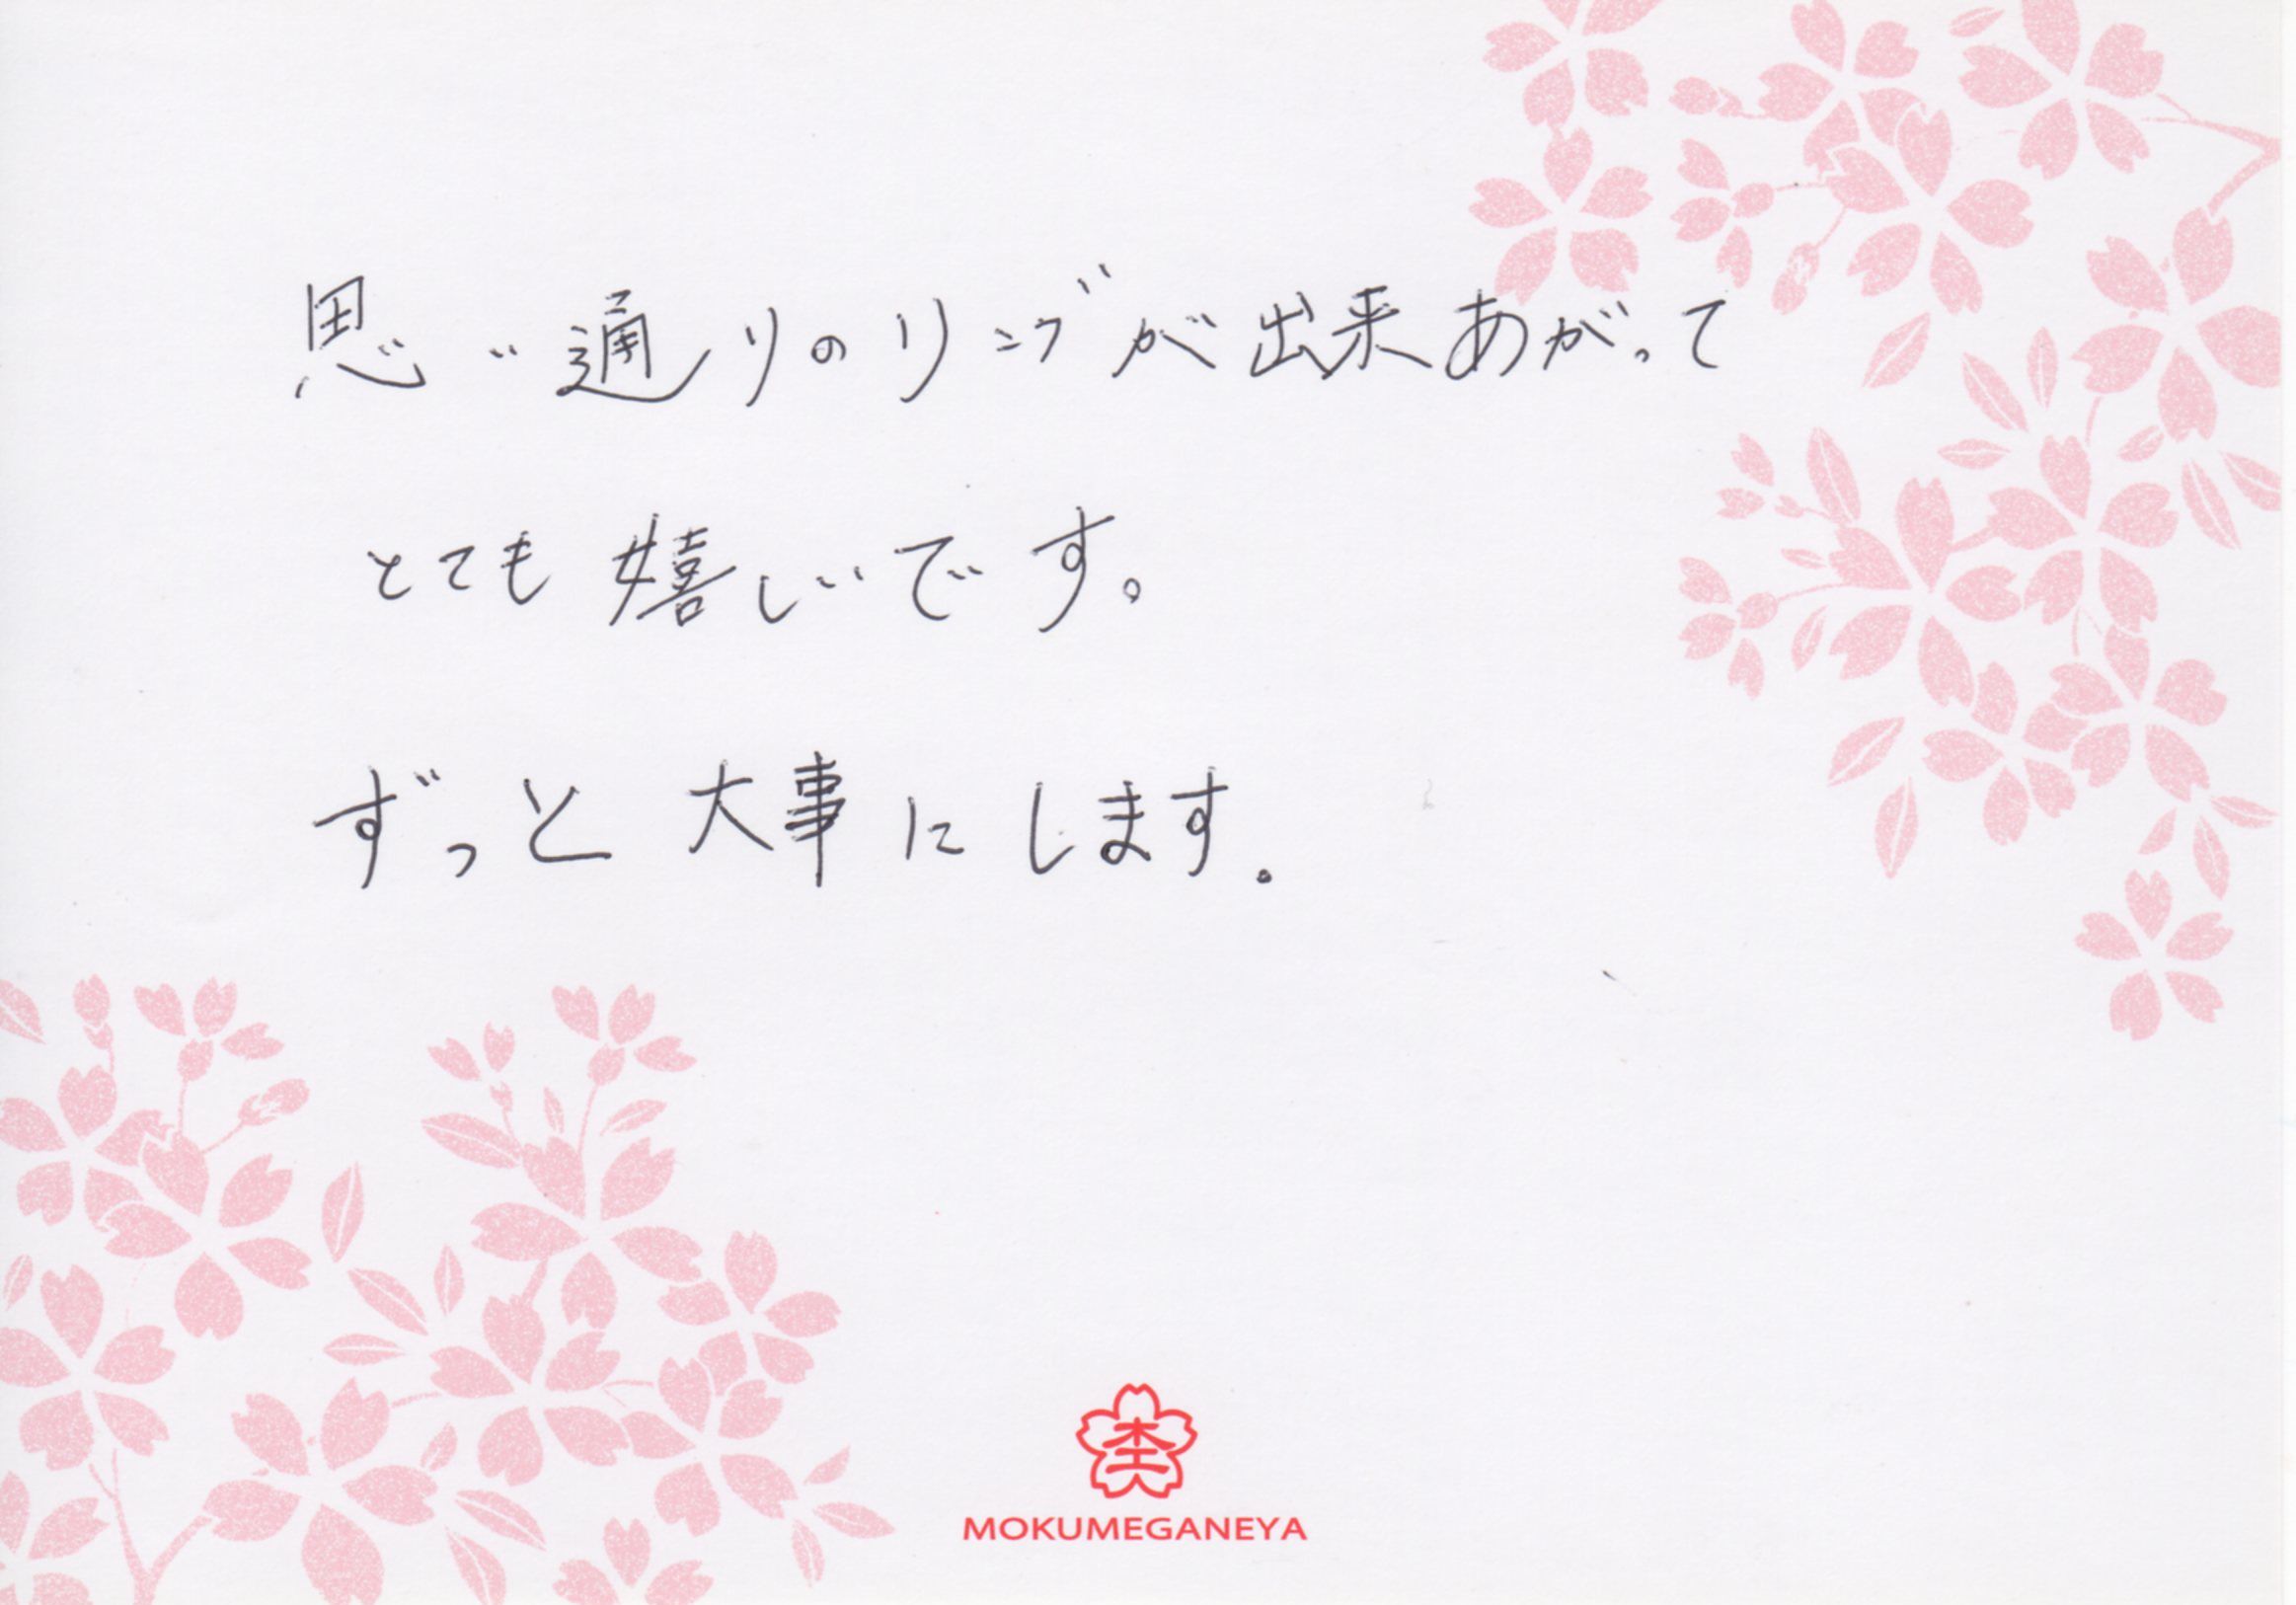 思い通りのリングが出来あがって
とても嬉しいです。
ずっと大事にします.
杢
MOKUMEGANEYA